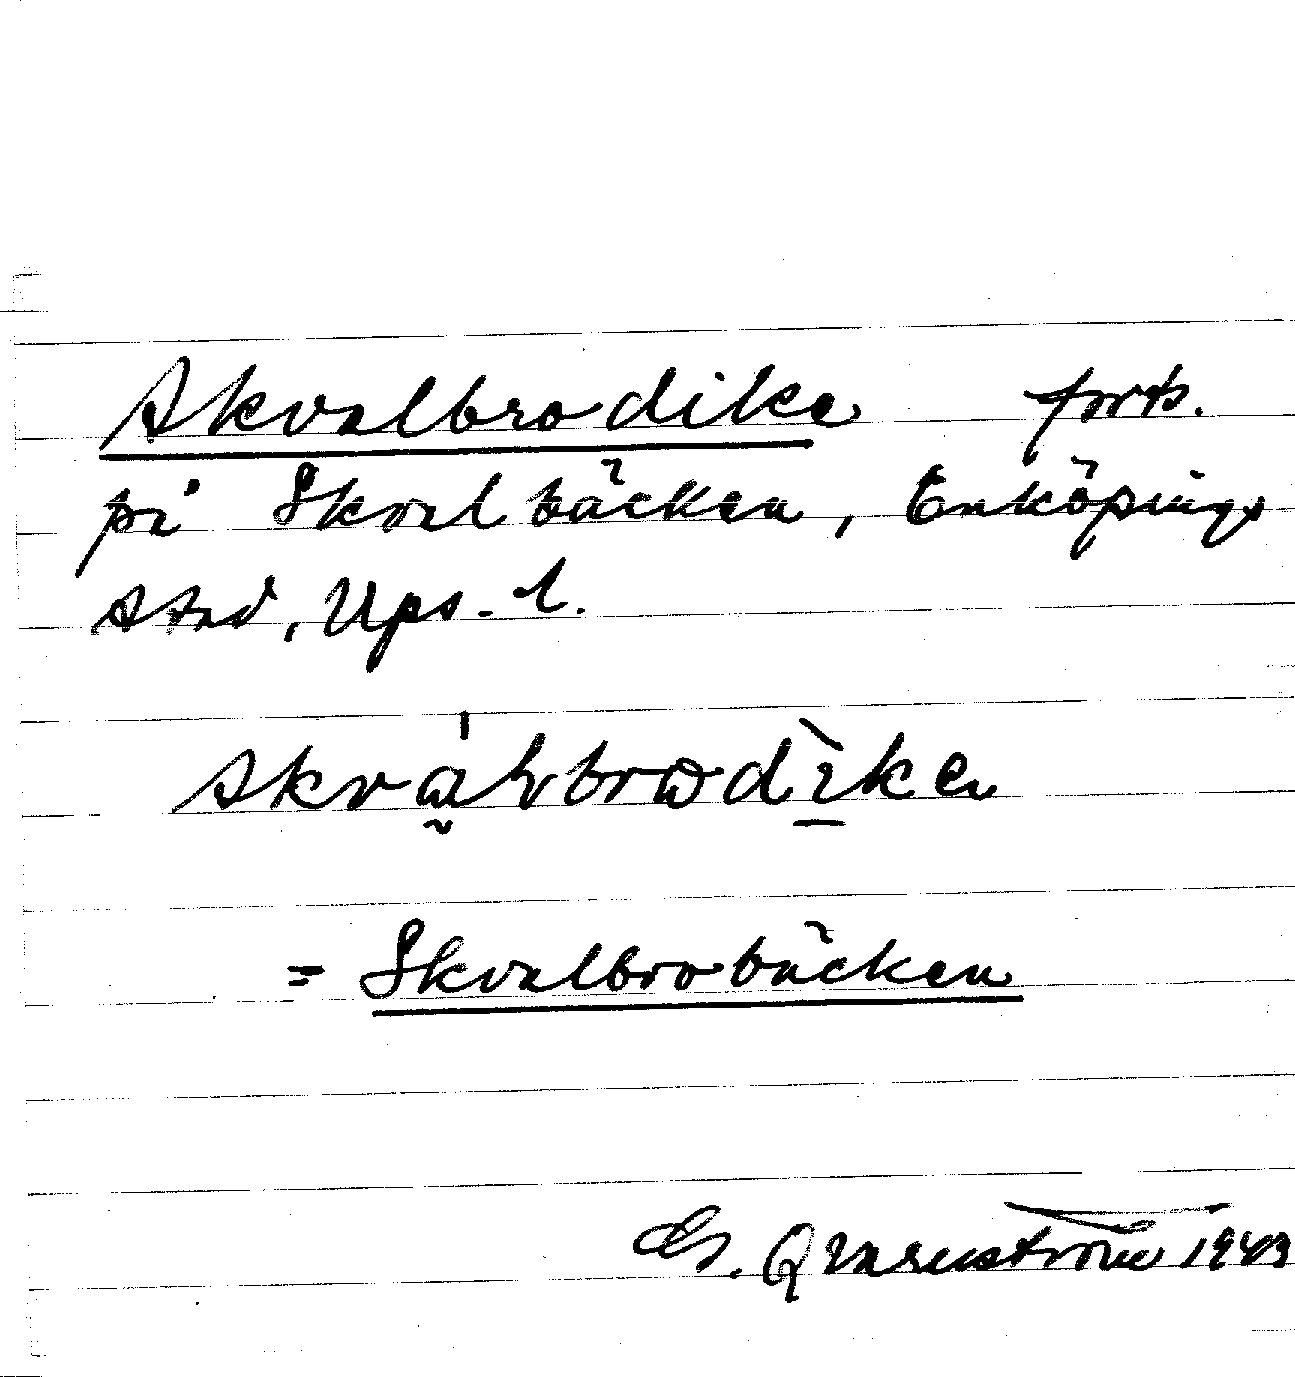 Skvalbrodike forts.
på Skvalbäcken, Enköpings
stad, Ups. l.
skvàlbrodìken
= Skvalbrobäcken
G. Qvarnström 1943